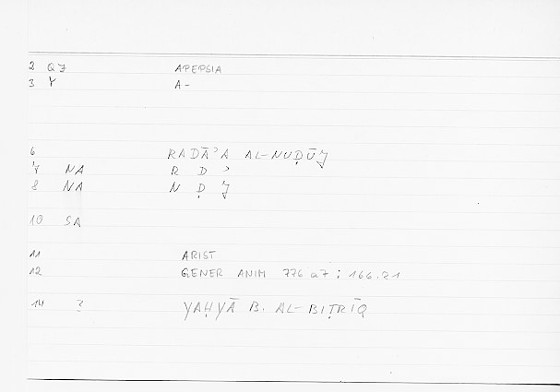 2 QJ APEPSIA
3 Y A-
6 RADĀʾA AL-NUḌŪJ
7 NA R D ʾ
8 NA N Ḍ J
10 SA
11 ARIST
12 GENER ANIM 776 a7 : 166.21
14 ? YAḤYĀ B. AL-BIṬRĪQ